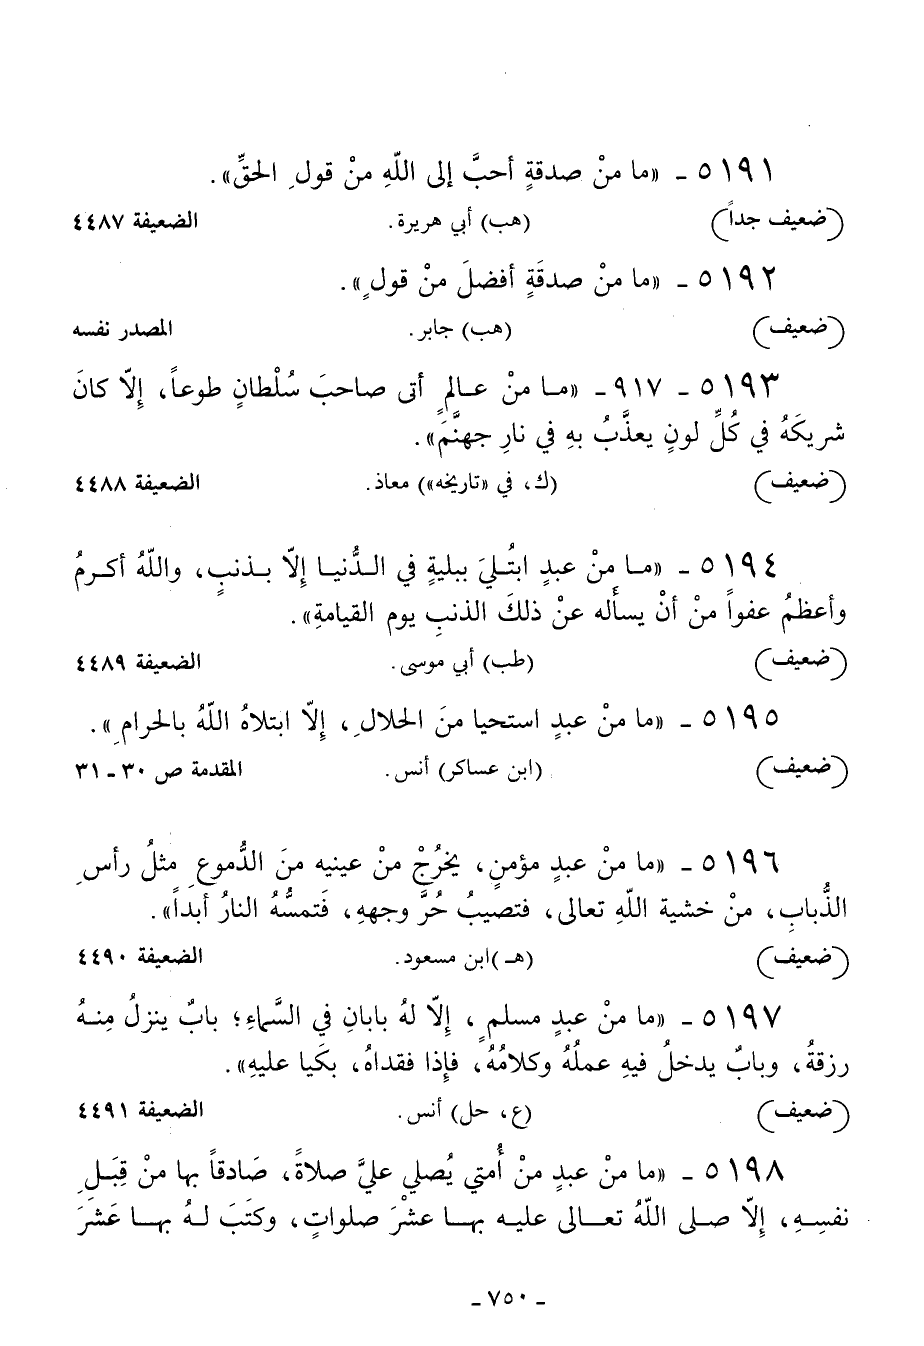 ٥١٩١ - «ما منْ صدقةٍ أحبَّ إلى اللّهِ منْ قولِ الحقِّ».
(ضعيف جداً) (هب) أبي هريرة. الضعيفة ٤٤٨٧
٥١٩٢ - «ما منْ صدقَةٍ أفضلَ منْ قولٍ».
(ضعيف) (هب) جابر. المصدر نفسه
٥١٩٣ - ٩١٧ - «مـا منْ عـالمٍ أتى صاحبَ سُلْطانٍ طوعاً، إلّا كانَ
شريكَهُ في كُلِّ لونٍ يعذَّبُ بهِ في نارِ جهنَّمَ».
(ضعيف) (ك، في «تاريخه») معاذ. الضعيفة ٤٤٨٨
٥١٩٤ - «مـا منْ عبدٍ ابتُـليَ ببليةٍ في الـدُّنيـا إلّا بـذنبٍ، واللّهُ أكـرمُ
وأعظمُ عفواً منْ أنْ يسأَله عنْ ذلكَ الذنبِ يوم القيامةِ».
(ضعيف) (طب) أبي موسى. الضعيفة ٤٤٨٩
٥١٩٥ - «ما منْ عبدٍ استحيا منَ الحلالِ، إلّا ابتلاهُ اللّهُ بالحرامِ».
(ضعيف) (ابن عساكر) أنس. المقدمة ص ٣٠ - ٣١
٥١٩٦ - «ما منْ عبدٍ مؤمنٍ، يخرُجْ منْ عينيه منَ الدُّموعِ مثلُ رأسِ
الذُّبابِ، منْ خشية اللّهِ تعالى، فتصيبُ حُرَّ وجههِ، فَتمسُّهُ النارُ أبداً».
(ضعيف) (هـ) ابن مسعود. الضعيفة ٤٤٩٠
٥١٩٧ - «ما منْ عبدٍ مسلمٍ، إلّا لهُ بابانِ في السَّماءِ؛ بابٌ ينزلُ مِنـهُ
رزقهُ، وبابٌ يدخلُ فيهِ عملُهُ وكلامُهُ، فإذا فقداهُ، بكَيا عليهِ».
(ضعيف) (ع، حل) أنس. الضعيفة ٤٤٩١
٥١٩٨ - «ما منْ عبدٍ منْ أُمتي يُصلي عليَّ صلاةً، صَادقاً بها منْ قِبَـلِ
نفسِـهِ، إلّا صـلى اللّهُ تعـالى عليـه بهـا عشْرَ صلواتٍ، وكتَبَ لـهُ بهـا عَشَرَ
- ٧٥٠ -